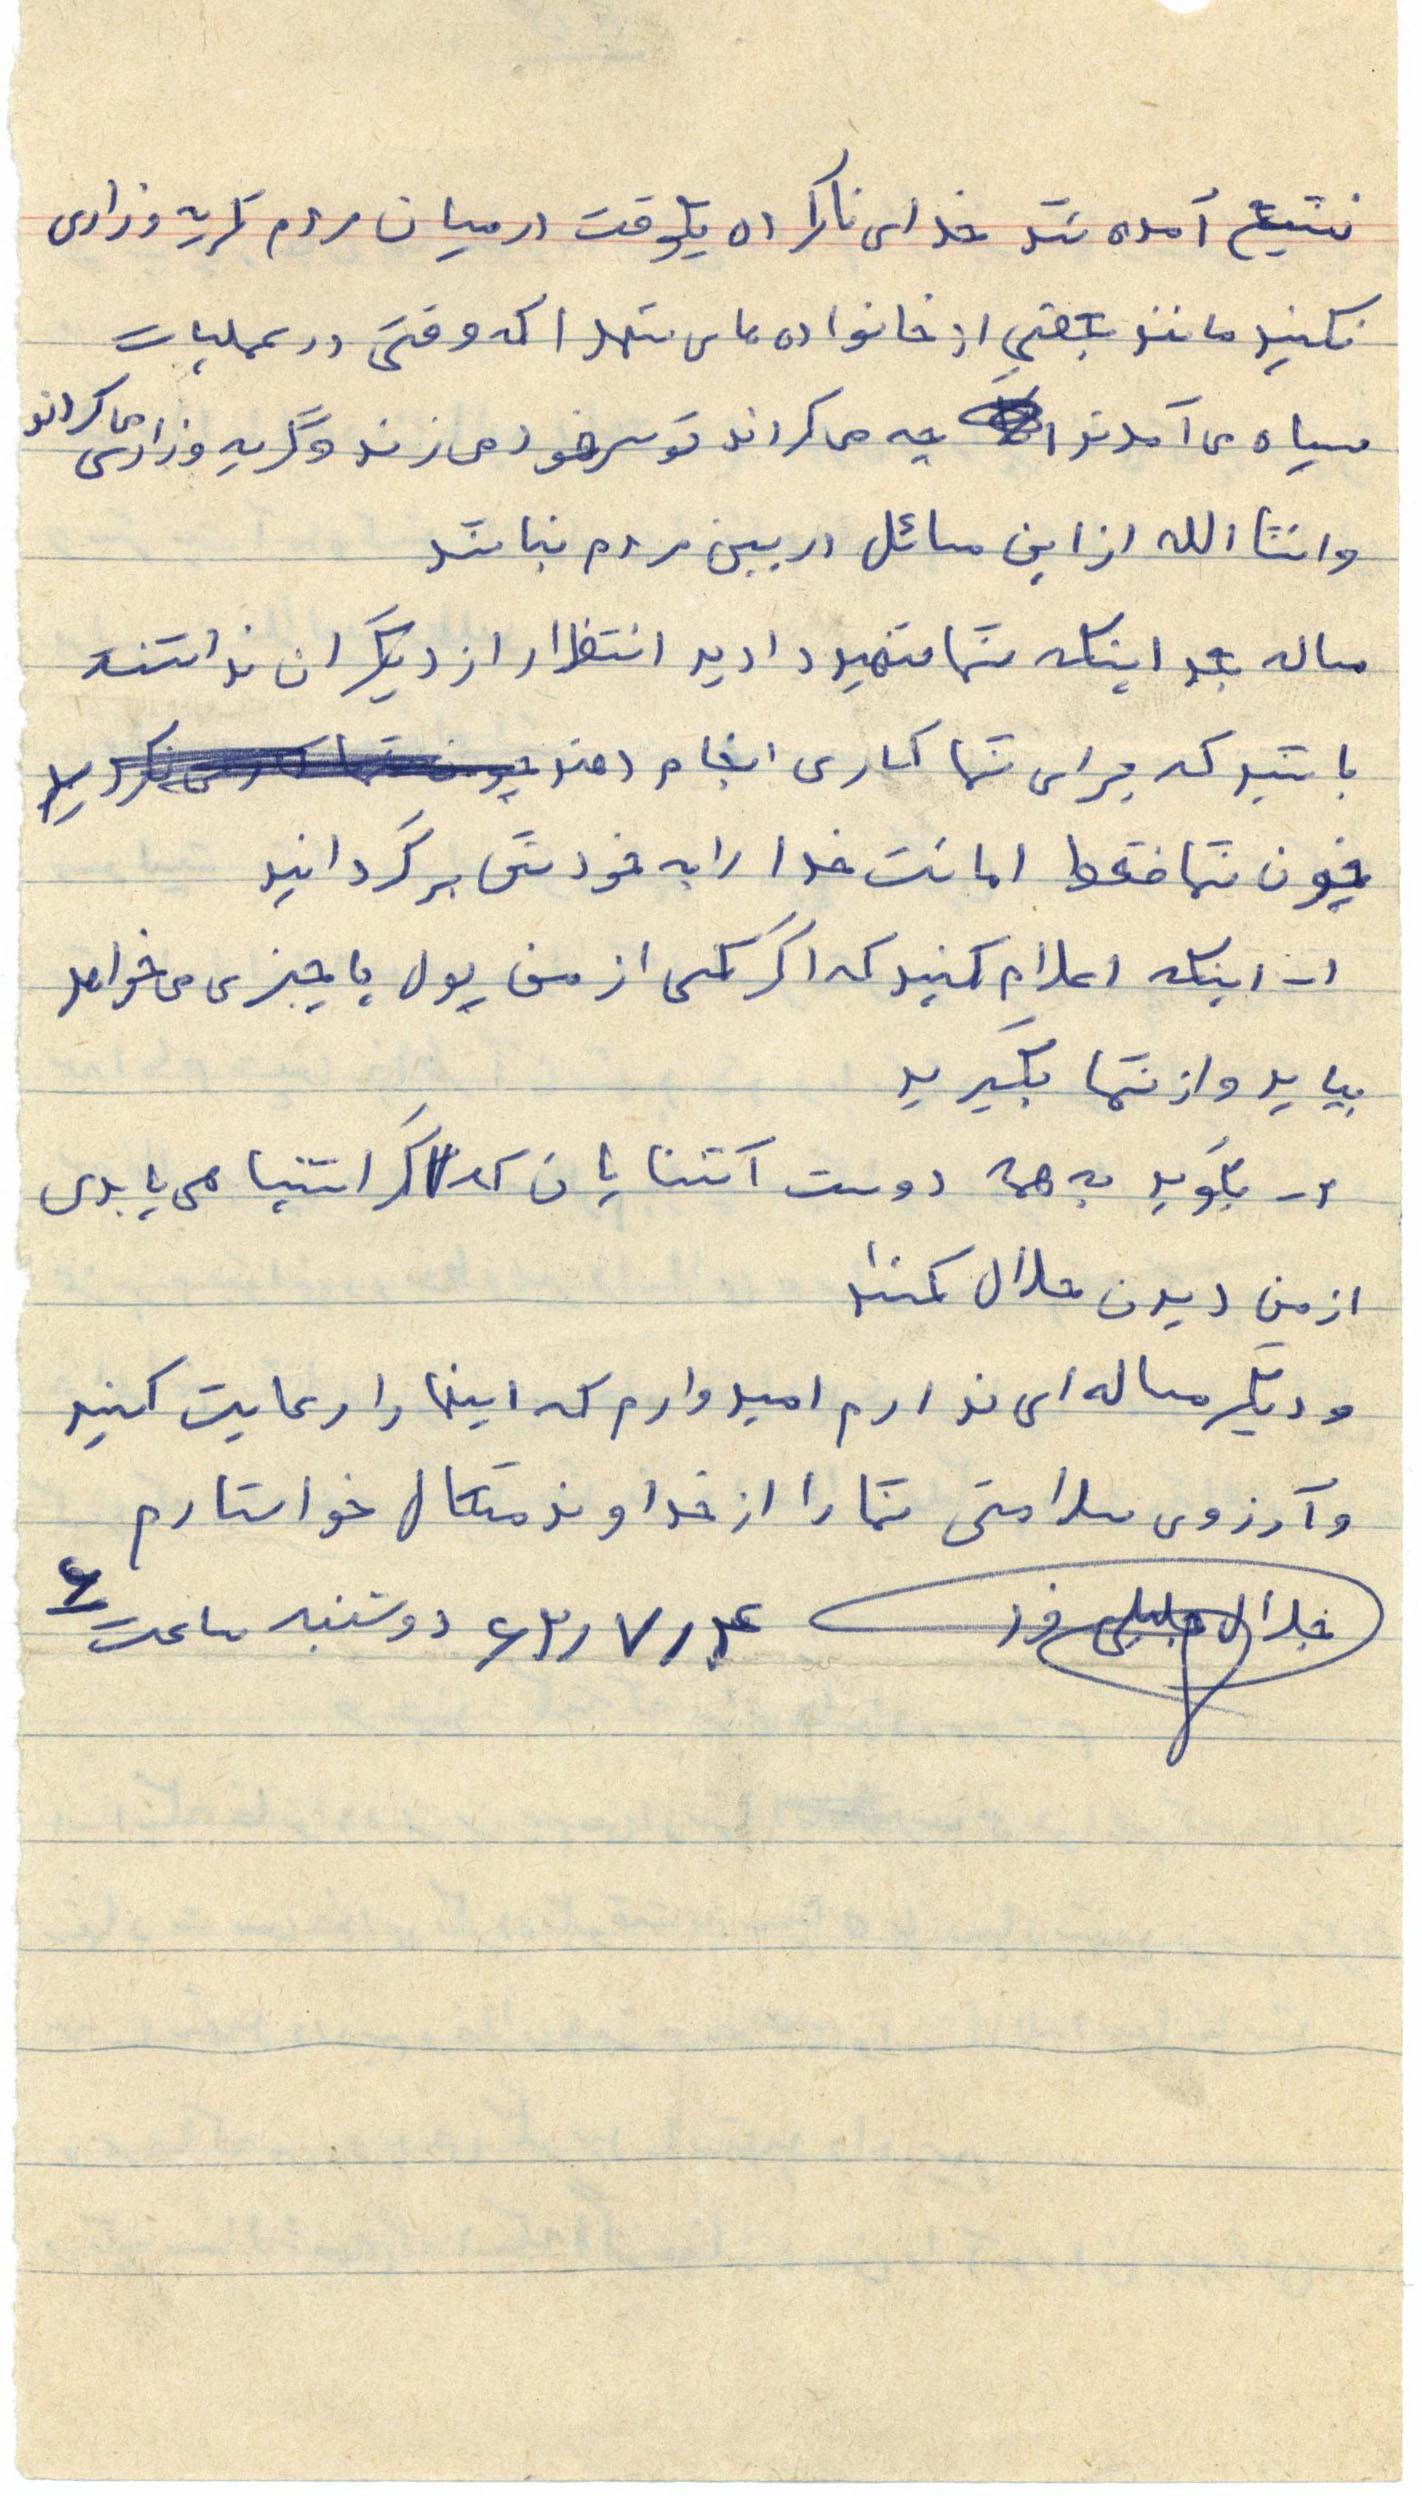 تشیع آمده شد خدای ناکرده یکوقت در میان مردم گریه وزاری
نکنید مانند بعضی از خانواده های شهدا که وقتی در عملیات
سپاه می آمدند چه می کردند تو سر خود می زند و گریه وزاری می کردند
وانشا الله از این مسائل در بین مردم نباشد
مساله بعد اینکه شما شهید دادید انتظار از دیگران نداشته
باشید که برای شما کاری انجام دهند
چون شما فقط امانت خدا را به خودش برگردانید
۱- اینکه اعلام کنید که اگر کسی از من پول یا چیزی می خواهد
بیاید و از شما بگیرید
۲- بگوید به همه دوست آشنایان که اگر اشتباهی یا بدی
از من دیدن حلال کنند
و دیگر مساله ای ندارم امیدوارم که اینها را رعایت کنید
و آرزوی سلامتی شما را از خداوند متعال خواستارم
جلال جلیلی فرد ۶۲/۷/۴ دوشنبه ساعت ۶